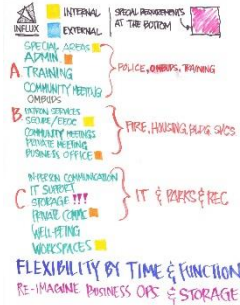 INFLUX
INTERNAL
EXTERNAL
SPECIAL REQUIREMENTS
AT THE BOTTOM
SPECIAL AREAS
ADMIN
A TRAINING
COMMUNITY MEETING
OMBUDS
POLICE, OMBUDS, TRAINING
B
SECURE/EEOC
COMMUNITY MEETINGS
PRIVATE MEETING
BUSINESS OFFICE
FIRE, HOUSING, BLDG SVCS
IN-PERSON COMMUNICATION
IT SUPPORT
C STORAGE !!!
PRIVATE COMMS
WELL-BEING
WORKSPACES
IT & PARKS & REC
FLEXIBILITY BY TIME & FUNCTION
RE-IMAGINE BUSINESS OPS & STORAGE